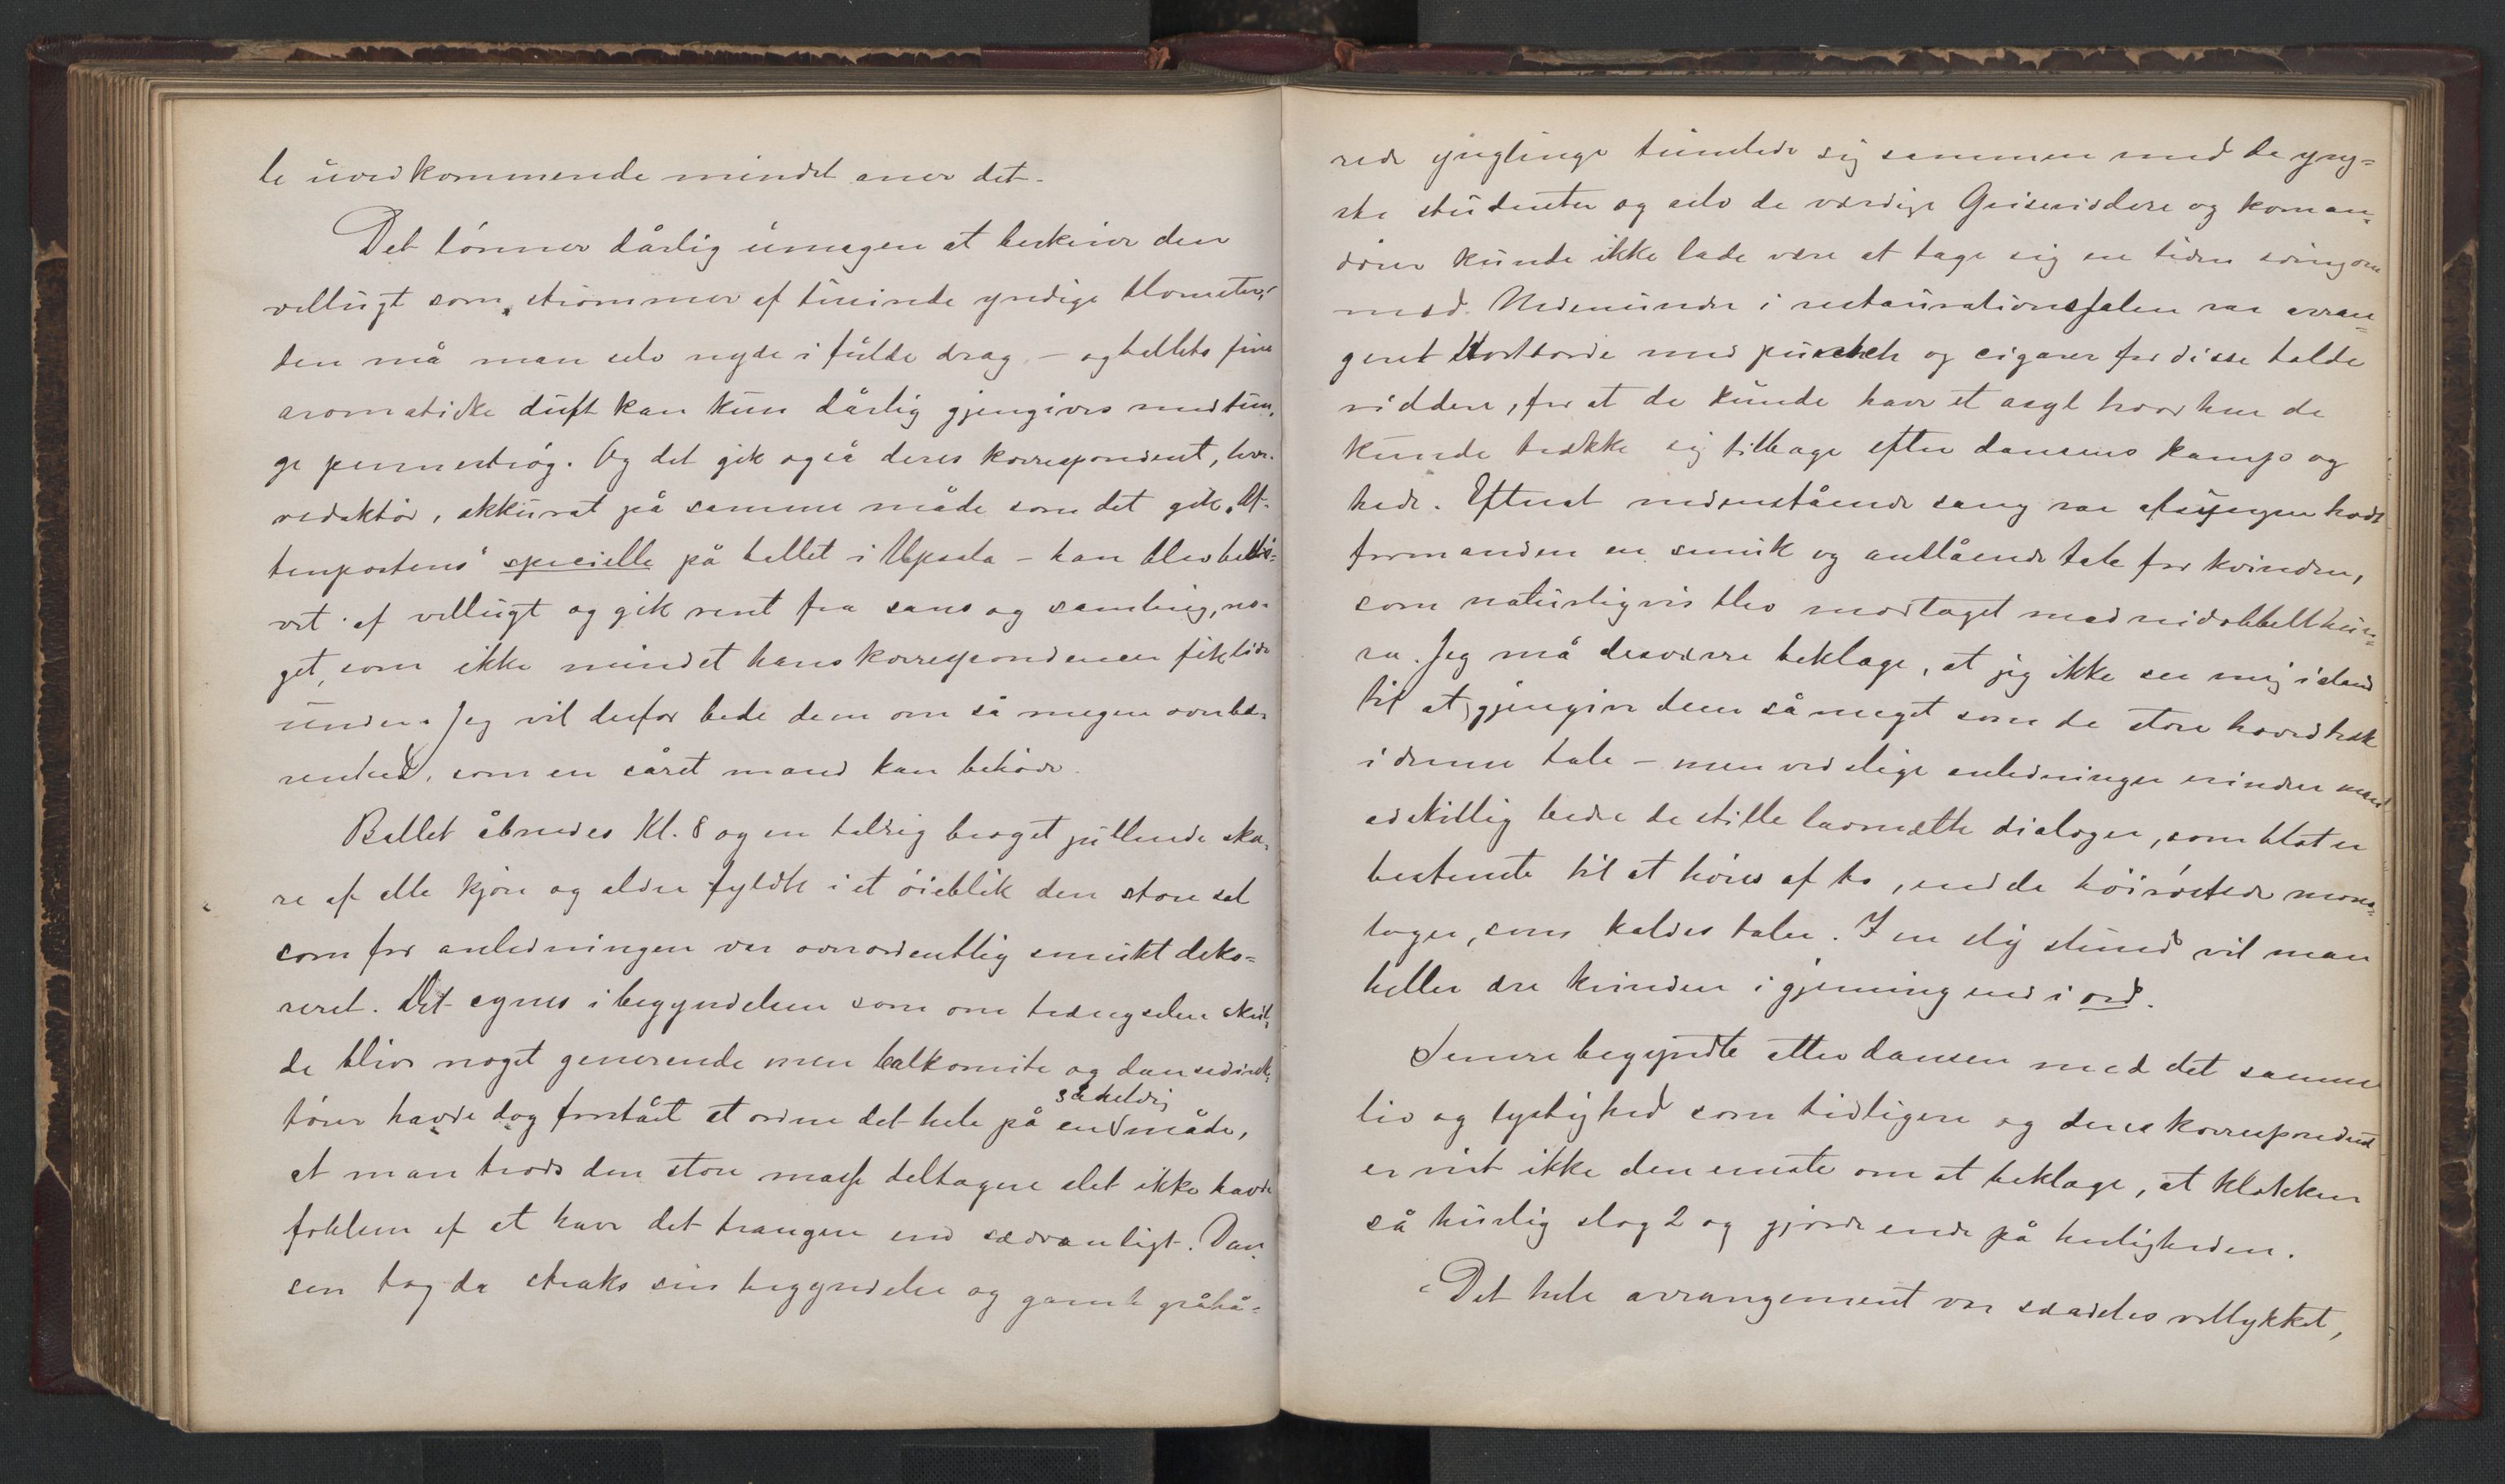 le uvedkommende mindst aner det.
Det lønner dårlig umagen at beskrive den
vellugt som strømmer af tusinde yndige blomster,
den må man selv nyde i fulde drag – og ballets fine
aromatiske duft kan kun dårlig gjengives med tun,
ge pennestrøg. Og det gik også deres korrespondent, hr.
redaktør, akkurat på samme måde som det gik "Af-
tenpostens" specielle på ballet i Upsala – han blev bedø-
vet af vellugt og gik rent fra sans og samling, no-
get, som ikke mindst hans korrespondencer fik lide
under. Jeg vil derfor bede dem om så megen overbæ-
renhed, som en såret mand kan behøve.
Ballet åbnedes Kl. 8 og en talrig broget jublende ska-
re af alle kjøn og aldre fyldte i et øieblik den store sal
som for anledningen var overordentlig smukt deko-
reret. Det synes i begyndelsen som om trængselen skul-
de blive noget generende men balkomite og dansedirek-
tører havde dog forstået at ordne det hele på en så heldig måde,
at man trods den store masse deltagere slet ikke havde
følelsen af at have det trangere end sædvanligt. Dan-
sen tog da straks sin begyndelse og gamle gråhå-
rede ynglinge tumlede sig sammen med de yng-
ste studenter og selv de værdige Griseriddere og koman-
dører kunde ikke lade være at tage sig en liden svingom
med. Nedenunder i restaurationssalen var arran-
geret kortborde med punsch og cigarer for disse balde
riddere, for at de kunde have et asyl hvor hen de
kunde trække sig tilbage efter dansens kamp og
hede. Efterat nedenstående sang var afsungen holdt
formanden en smuk og anslående tale for kvinden,
som naturligvis blev modtaget med nidobbelt hur-
ra. Jeg må desværre beklage, at jeg ikke ser mig istand
til at gjengive dem så meget som de store hovedtræk
i denne tale – men ved slige anledninger erindrer man
adskillig bedre de stille lavmælte dialoger, som blot er
bestemte til at høres af to, end de høirøstede mono-
loger, som kaldes taler. I en slig stund vil man
heller ære kvinden i gjerning end i ord.
Senere begyndte atter dansen med det samme
liv og lystighed som tidligere og deres korrespondent
er vist ikke den eneste om at beklage, at klokken
så hurtig slog 2 og gjorde ende på herligheden.
Det hele arrangement var særdeles vellykket,